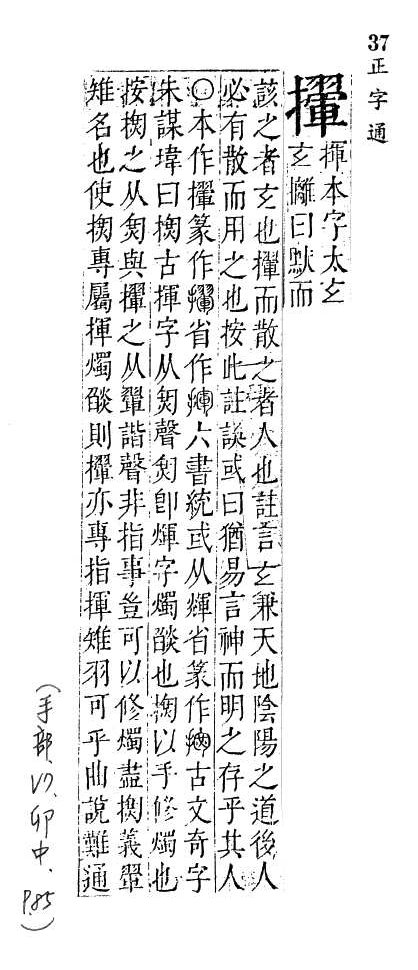 37 正字通
揮本字太玄
玄攡曰默而
該之者玄也而散之者人也註言玄兼天地陰陽之道後人
必有散而用之也按此註誤或曰猶易言神而明之存乎其人
○本作篆作省作六書統或从輝省篆作古文奇字
朱謀㙔曰古揮字从聲卽煇字燭燄也以手修燭也
按之从與之从翬諧聲非指事豈可以修燭盡義翬
雉名也使專屬揮燭燄則亦專指揮雉羽可乎曲說難通
(手部 卯中. P.85)